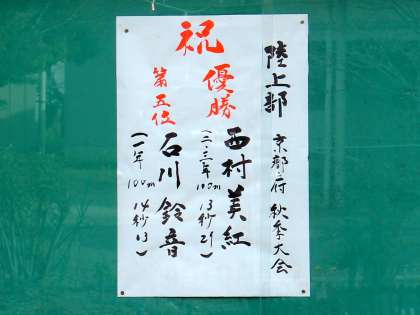 陸上部 京都府 秋季大会
祝
優勝 西村美紅
(二・三年 100m 13秒21)
第五位 石川鈴音
(一年 100m 14秒13)